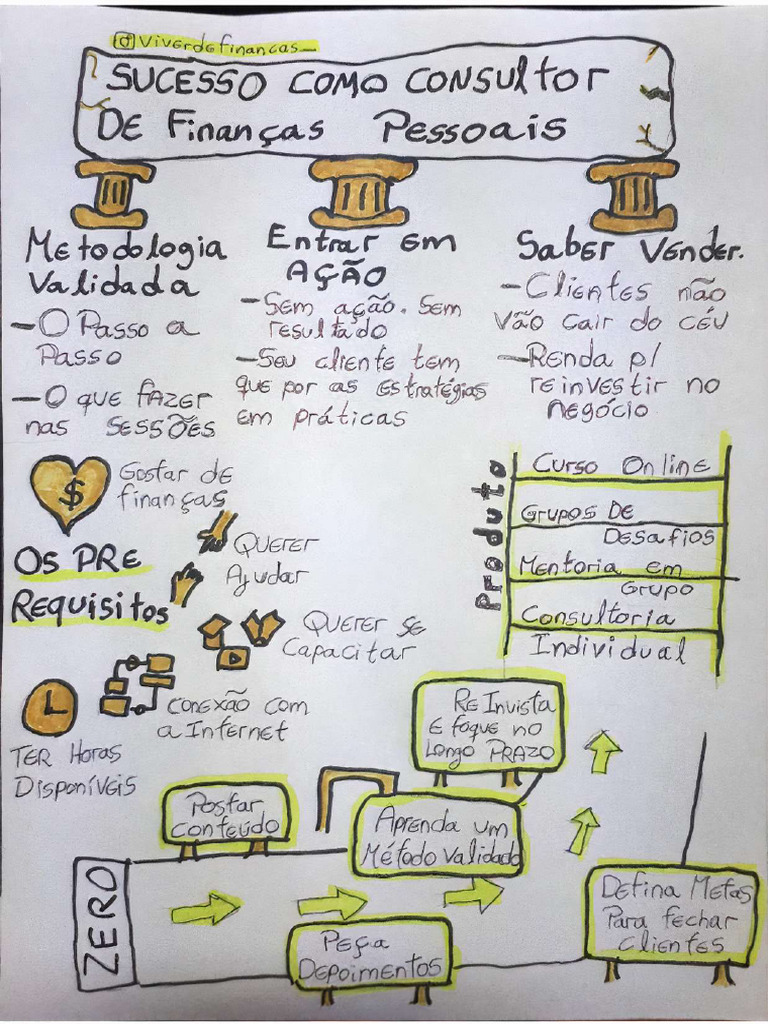 @Viverdefinancas_
SUCESSO COMO CONSULTOR
DE Finanças Pessoais
Metodologia
Validada
- O Passo a
Passo
- O que fazer
nas SESSÕES
Entrar em
AÇÃO
- Sem ação. Sem
resultado
- Seu cliente tem
que por as estratégias
em práticas
Saber Vender.
- Clientes não
vão cair do céu
- Renda p/
reinvestir no
negócio
$
Gostar de
finanças
Os PRE
Requisitos
Querer
Ajudar
Querer se
Capacitar
Conexão com
a Internet
TER Horas
Disponíveis
Produto
Curso Online
Grupos De
Desafios
Mentoria em
Grupo
Consultoria
Individual
ReInvista
e foque no
Longo PRAZO
Postar
conteúdo
Aprenda um
Método Validado
ZERO
Peça
Depoimentos
Defina Metas
Para fechar
Clientes